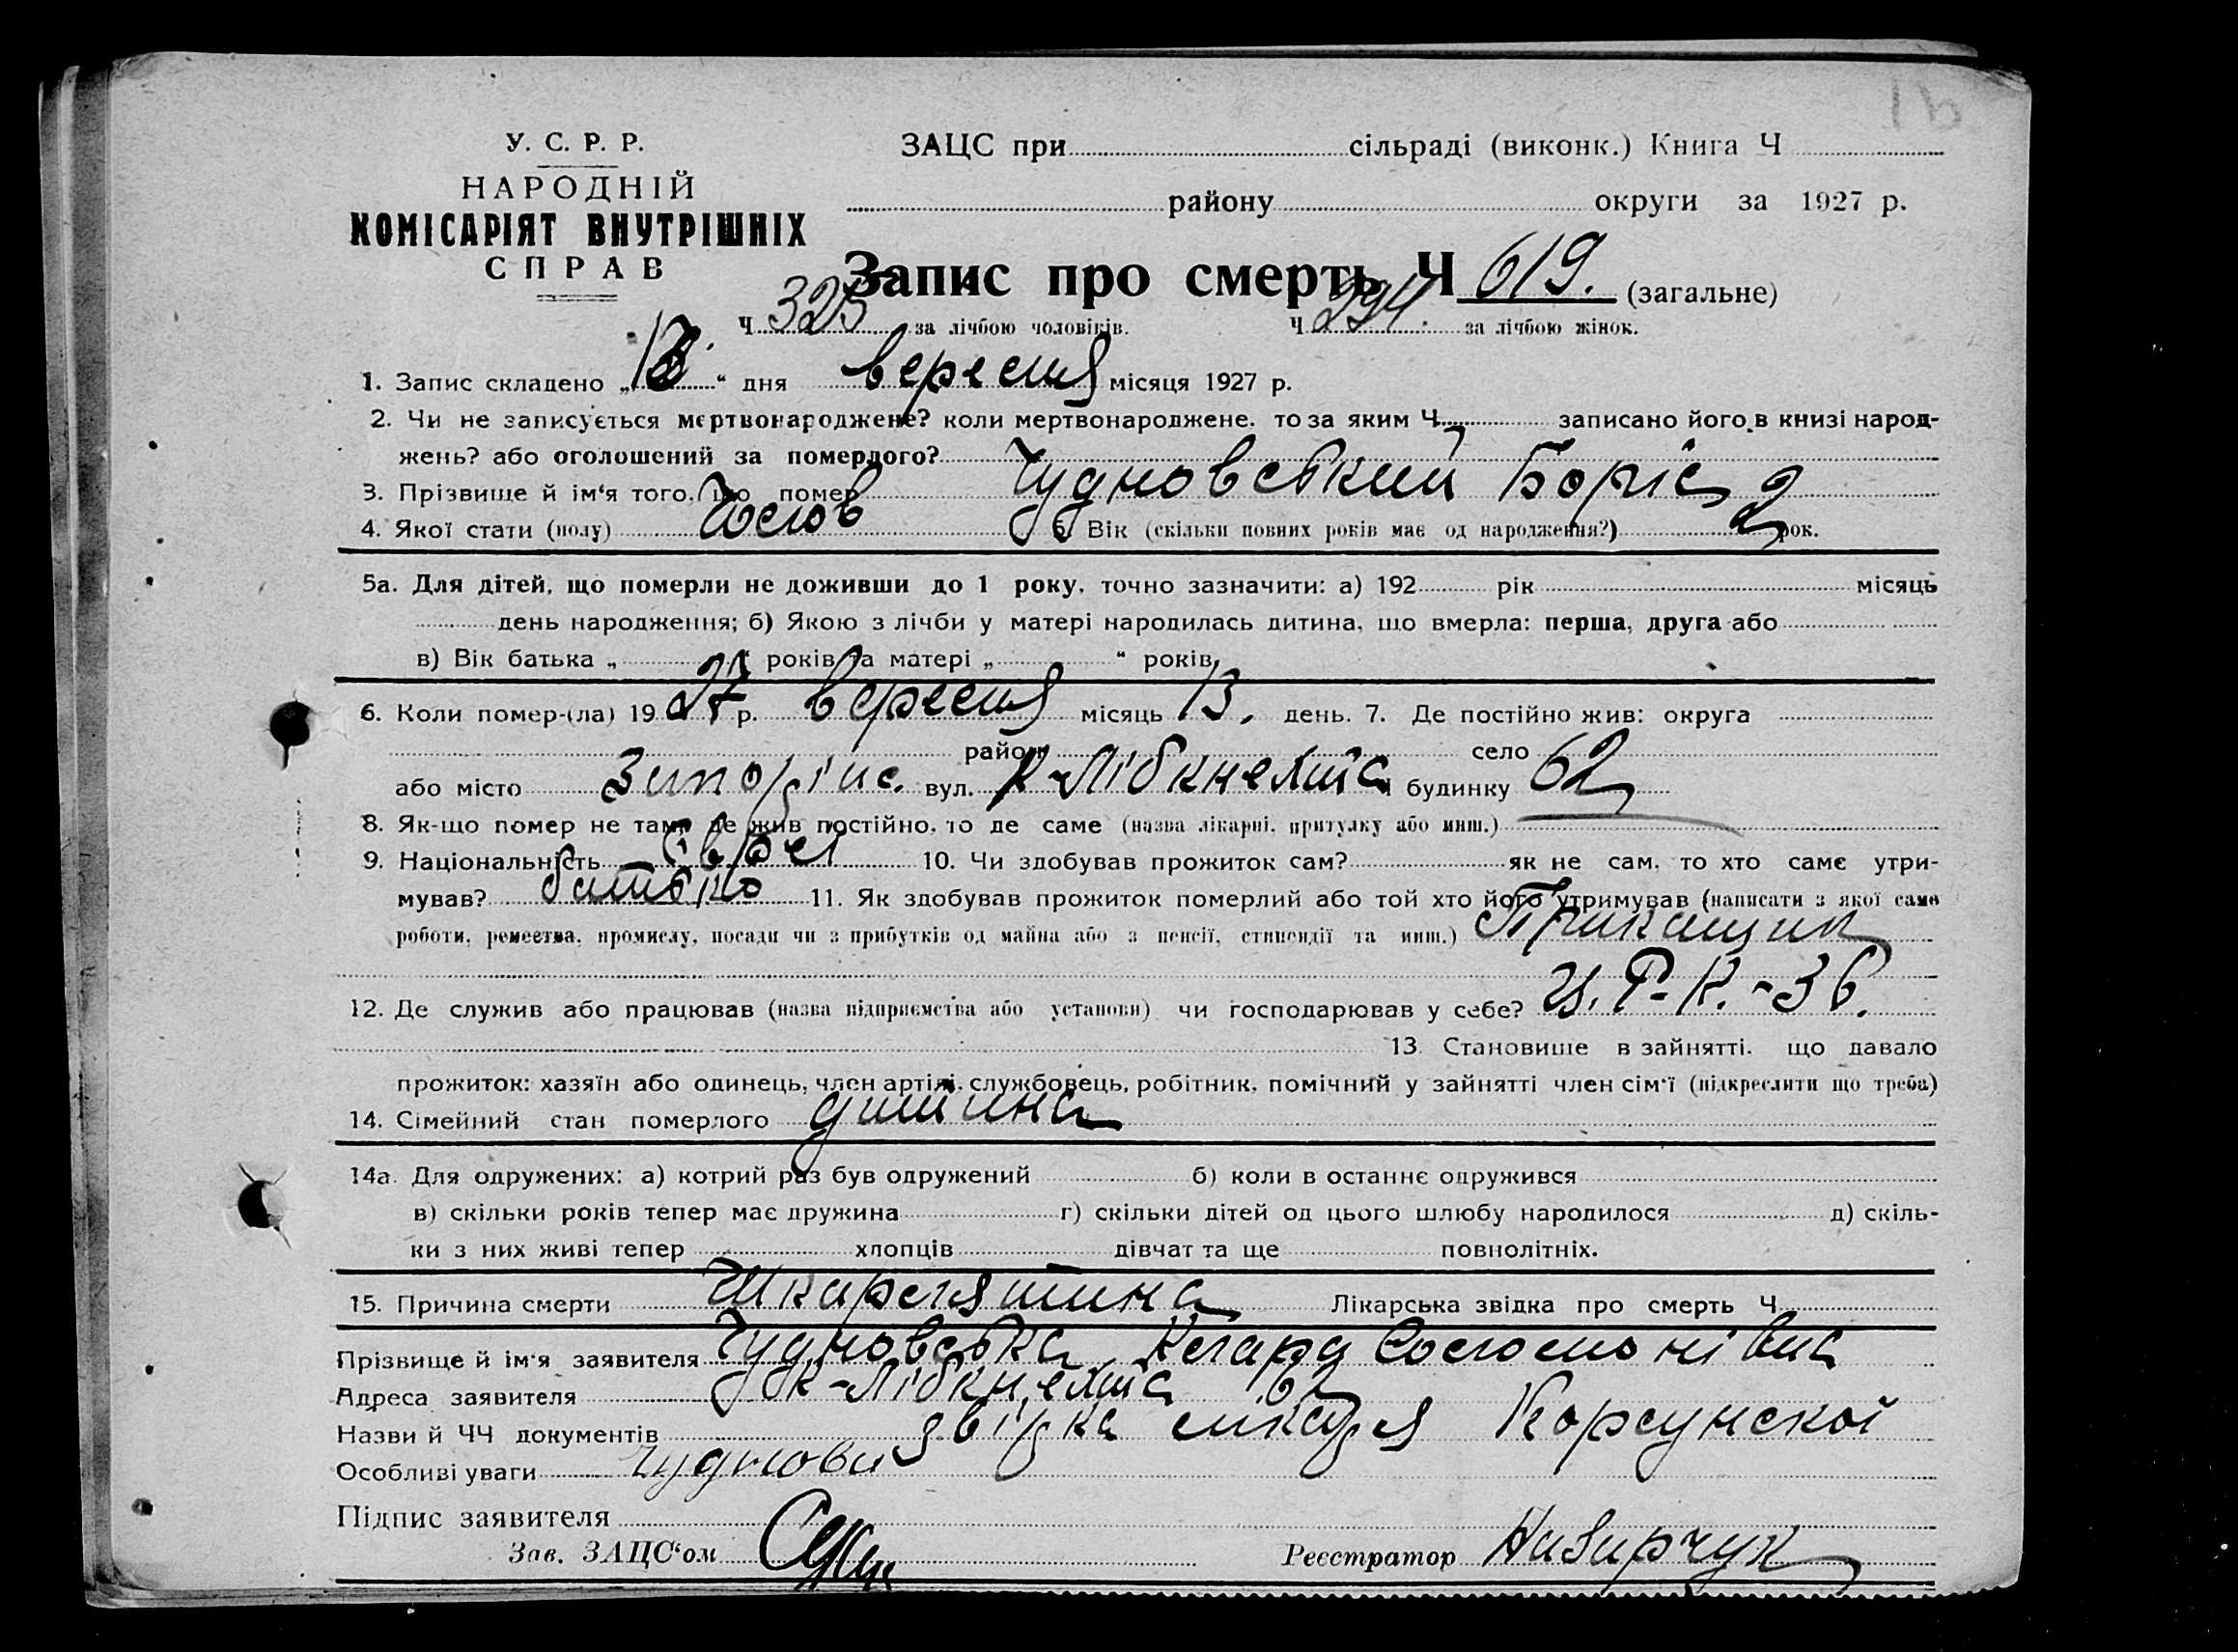 У. С. Р. Р.
НАРОДНІЙ
КОМІСАРІЯТ ВНУТРІШНІХ
СПРАВ
ЗАЦС при сільраді (виконк.) Книга Ч
району округи за 1927 р.
Запис про смерть Ч 619. (загальне)
Ч 325 за лічбою чоловіків. Ч 294. за лічбою жінок.
1. Запис складено „ “ дня вересня місяця 1927 р.
2. Чи не записується мертвонароджене? коли мертвонароджене, то за яким Ч. записано його в книзі народ-
жень? або оголошений за померлого?
3. Прізвище й ім‘я того, що помер Чудновський Боріс
4. Якої стати (полу) Чолов 5. Вік (скільки повних років має од народження?) 2 рок.
5а. Для дітей, що померли не доживши до 1 року, точно зазначити: а) 192 рік місяць
день народження; б) Якою з лічби у матері народилась дитина, що вмерла: перша, друга або
в) Вік батька „ “ років та матері „ “ років
6. Коли помер-(ла) 1927 р. вересня місяць 13. день. 7. Де постійно жив: округа
район село
або місто Запоріж. вул. К-Лібкнехта будинку 62
8. Як-що помер не там, де жив постійно, то де саме (назва лікарні, притулку або инш.)
9. Національність Єврей 10. Чи здобував прожиток сам? як не сам, то хто саме утри-
мував? батько 11. Як здобував прожиток померлий або той хто його утримував (написати з якої саме
роботи, ремества, промислу, посади чи з прибутків од майна або з пенсії, стипендії та инш.) Прикащик
12. Де служив або працював (назва підприємства або установи) чи господарював у себе? Ц. Р. К. - 36.
13. Становище в зайнятті, що давало
прожиток: хазяїн або одинець, член артілі, службовець, робітник, помічний у зайнятті член сім‘ї (підкреслити що треба)
14. Сімейний стан померлого дитина
14а. Для одружених: а) котрий раз був одружений б) коли в останнє одружився
в) скільки років тепер має дружина г) скільки дітей од цього шлюбу народилося д) скіль-
ки з них живі тепер хлопців дівчат та ще повнолітніх.
15. Причина смерти Шкарлятина Лікарська звідка про смерть Ч.
Прізвище й ім‘я заявителя Чудновська Клара Соломонівна
Адреса заявителя К-Лібкнехта 62
Назви й ЧЧ документів звідка лікаря Корсунской
Особливі уваги
Підпис заявителя
Зав. ЗАЦС‘ом Реєстратор